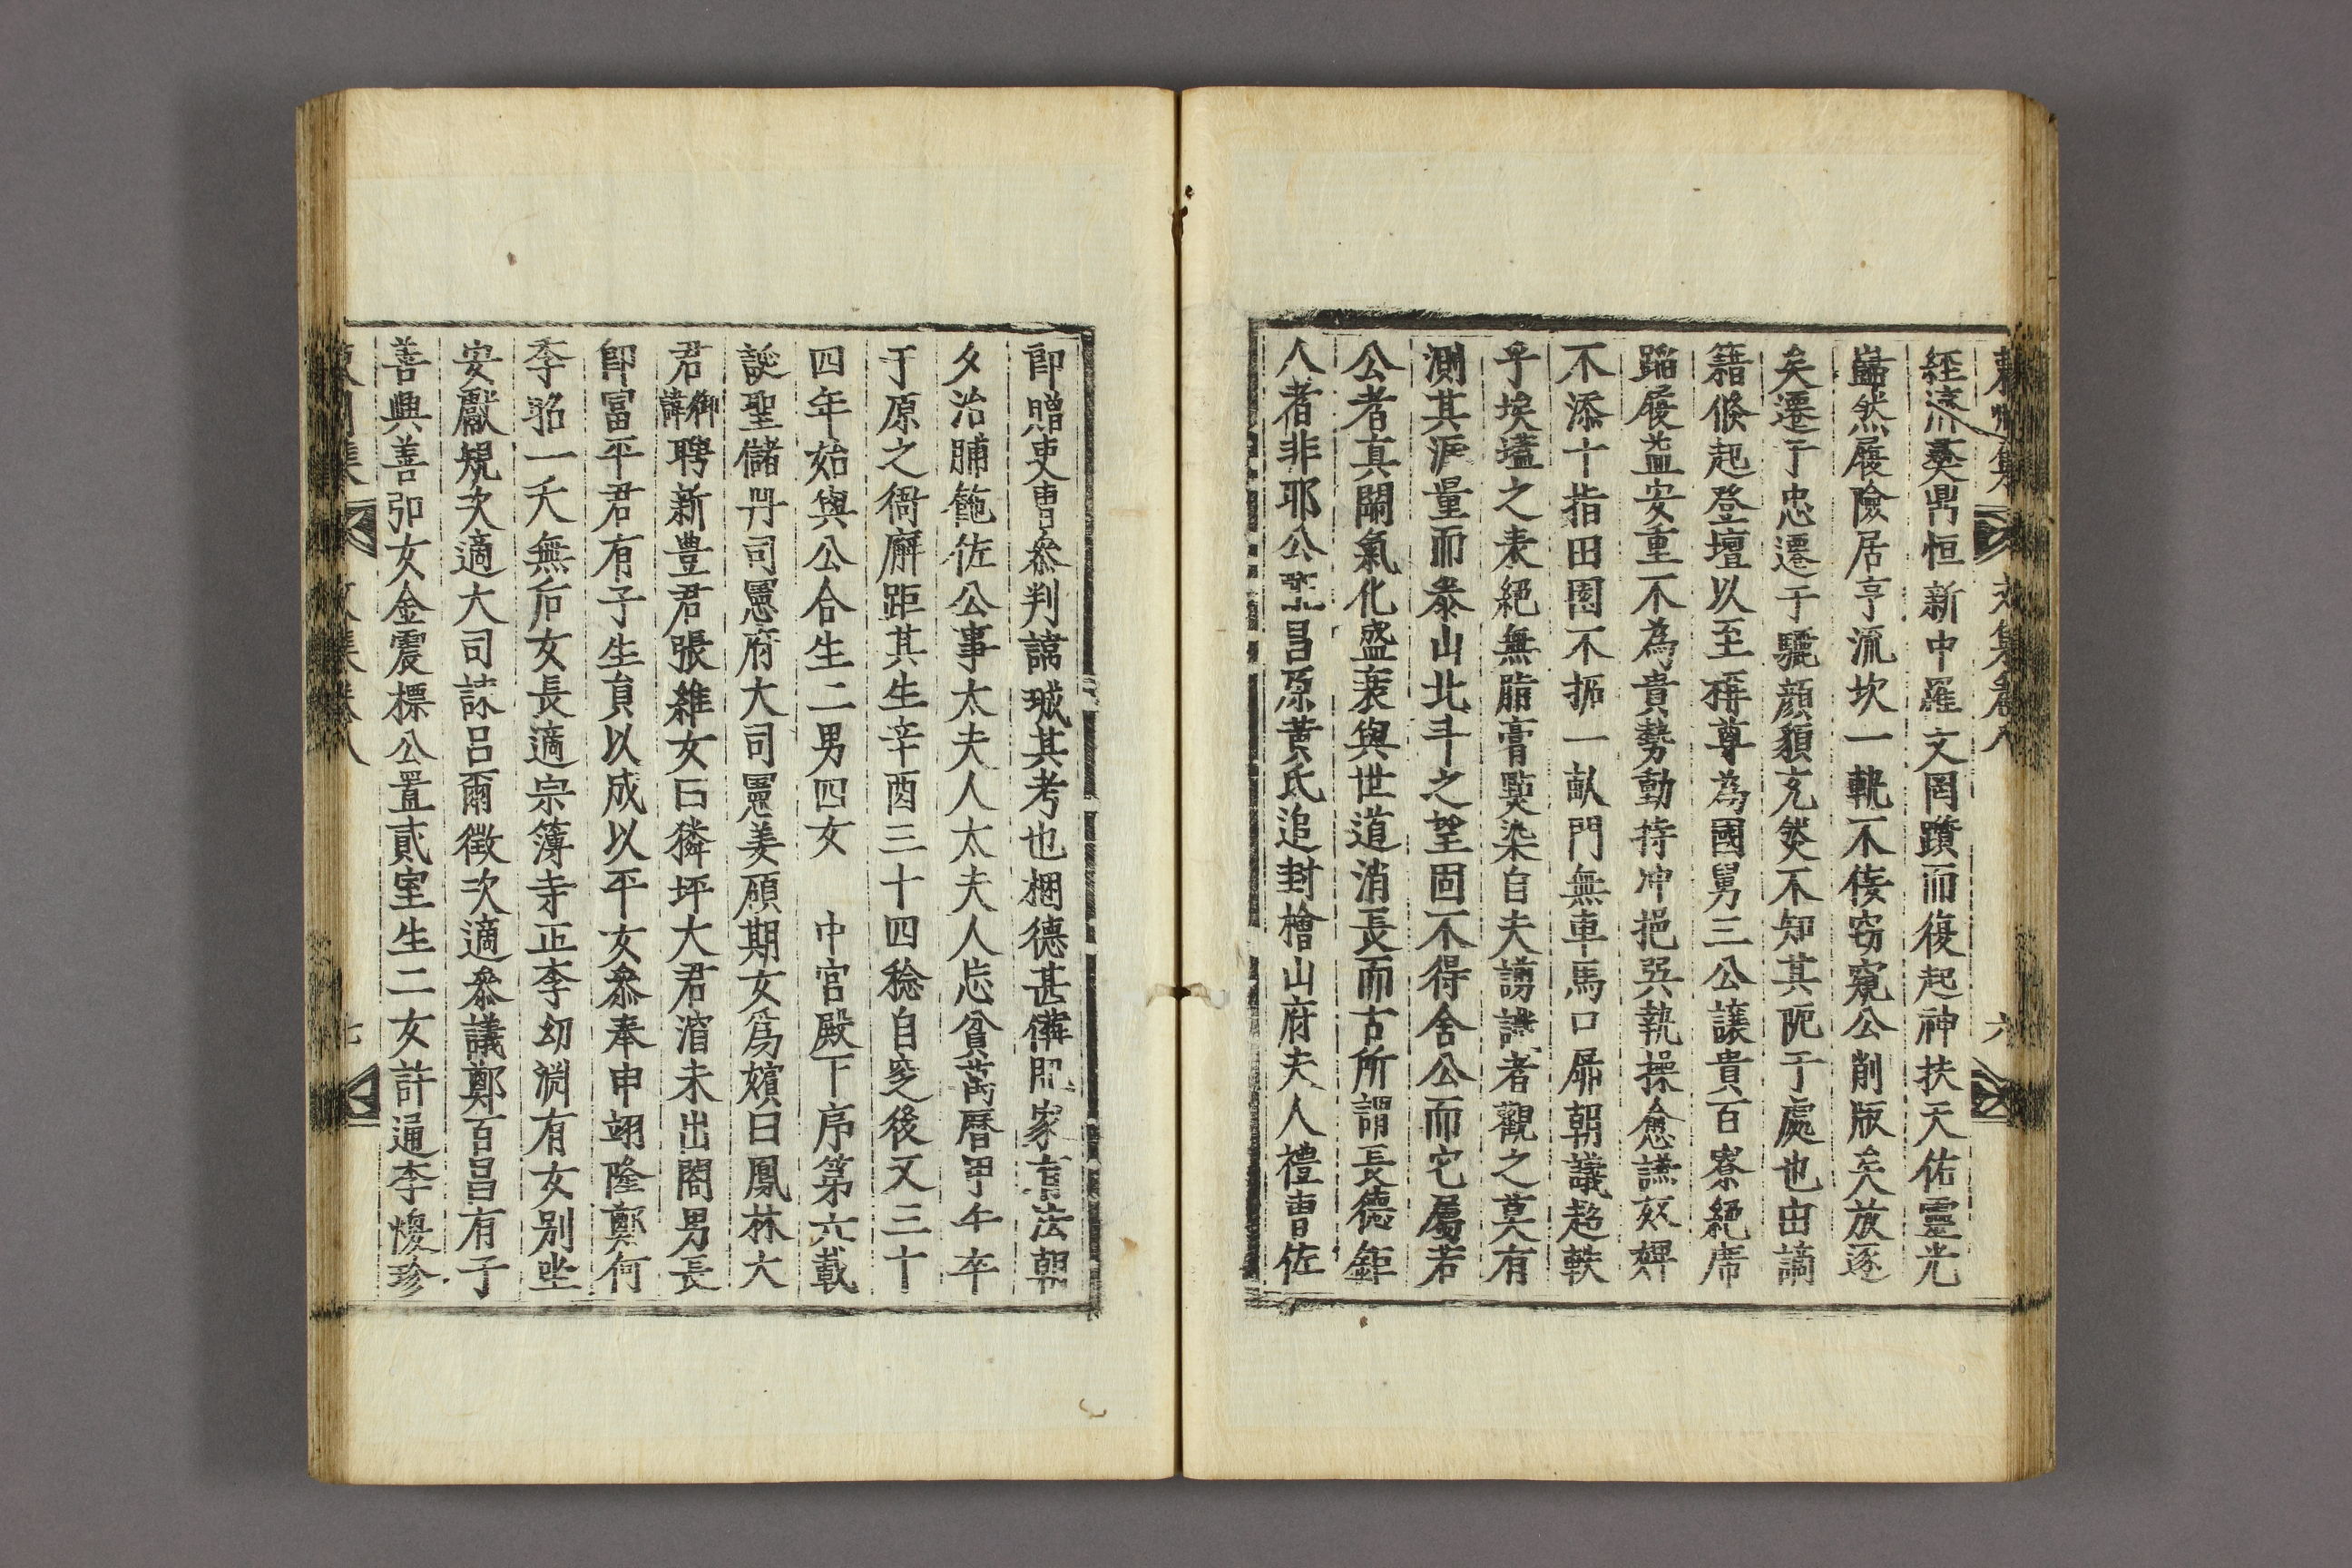 文集卷八 六
經濟羹鼎恒新中羅文罔躓而復起神扶天佑靈光
巋然履險居亨流坎一軌不倿窃窺公削版矣放逐
矣遷于忠遷于驪顔頮充然不知其阨于處也由謫
籍倐起登壇以至稱尊為國舅三公讓貴百寮絕席
蹈履益安重不為貴勢動持冲挹㢲執操愈謙奴婢
不添十指田園不拓一畝門無車馬口屏朝議超軼
乎埃壒之表絕無脂膏㸃染自夫謗讟者觀之莫有
測其涯量而泰山北斗之望固不得舍公而它屬若
公者真關氣化盛衰與世道消長而古所謂長德鉅
人者非耶公昌原黃氏追封檜山府夫人禮曹佐
郞贈吏曹叅判諱瑊其考也梱德甚備家有法朝
夕治脯䉛佐公事太夫人太夫人忘貧萬曆甲午卒
于原之衙廨距其生辛酉三十四稔自窆後又三十
四年始與公合生二男四女 中宮殿下序第六載
誕聖儲丹司憲府大司憲姜碩期女爲嬪曰鳳林大
君御諱聘新豊君張維女曰獜坪大君㴭未出閤男長
卽冨平君有子生員以成以平女叅奉申翊隆鄭何
季昭一夭無后女長適宗簿寺正李幼淵有女别坐
安獻規次適大司諫呂爾徵次適叅議鄭百昌有子
善興善卬女金震標公置貳室生二女許通李㥥珍
集 文集卷八 七